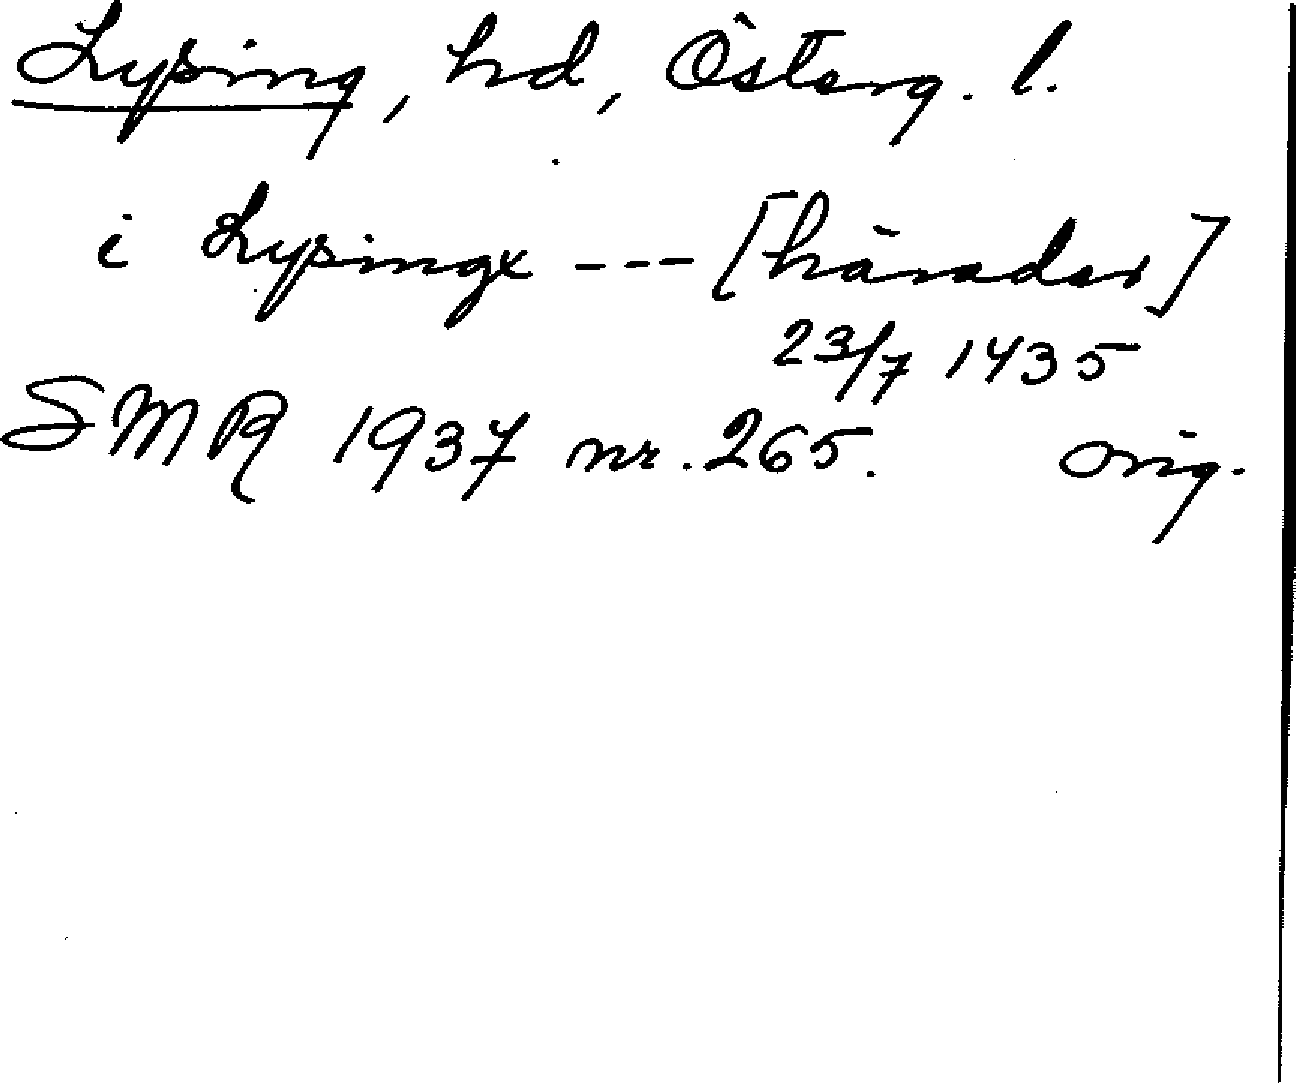 Lysing, hd, Österg. l.
i Lysingx --- [härader]
23/7 1435
SMR 1937 nr. 265. orig.